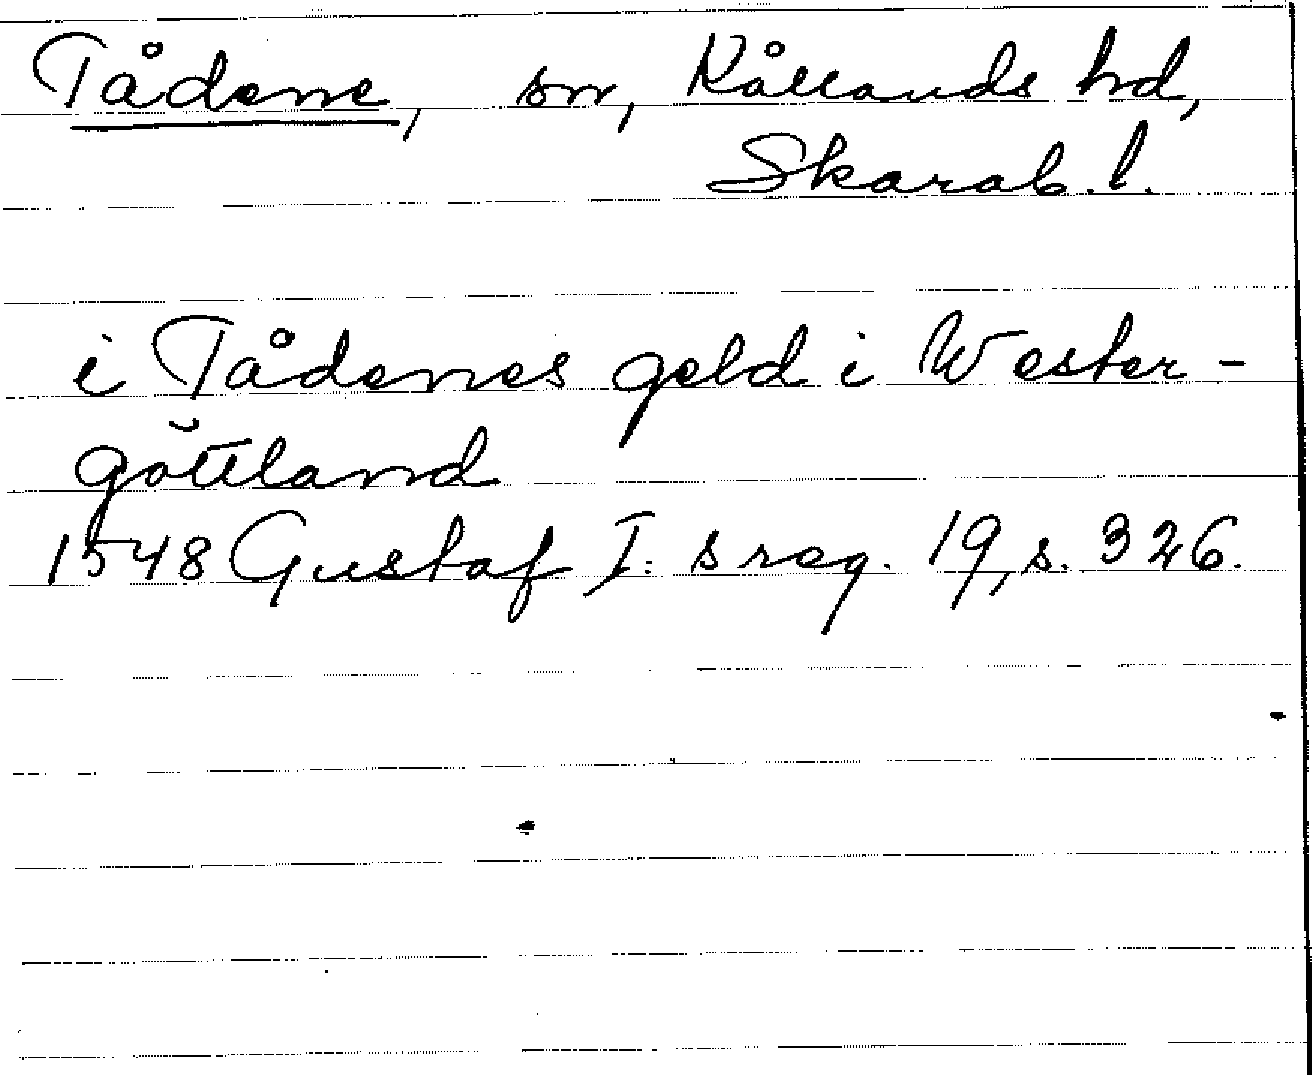 Tådene, sn, Kållands hd,
Skarab. l.
i Tådenes geld i Wester-
göttland
1548 Gustaf I:s reg. 19, s. 326.